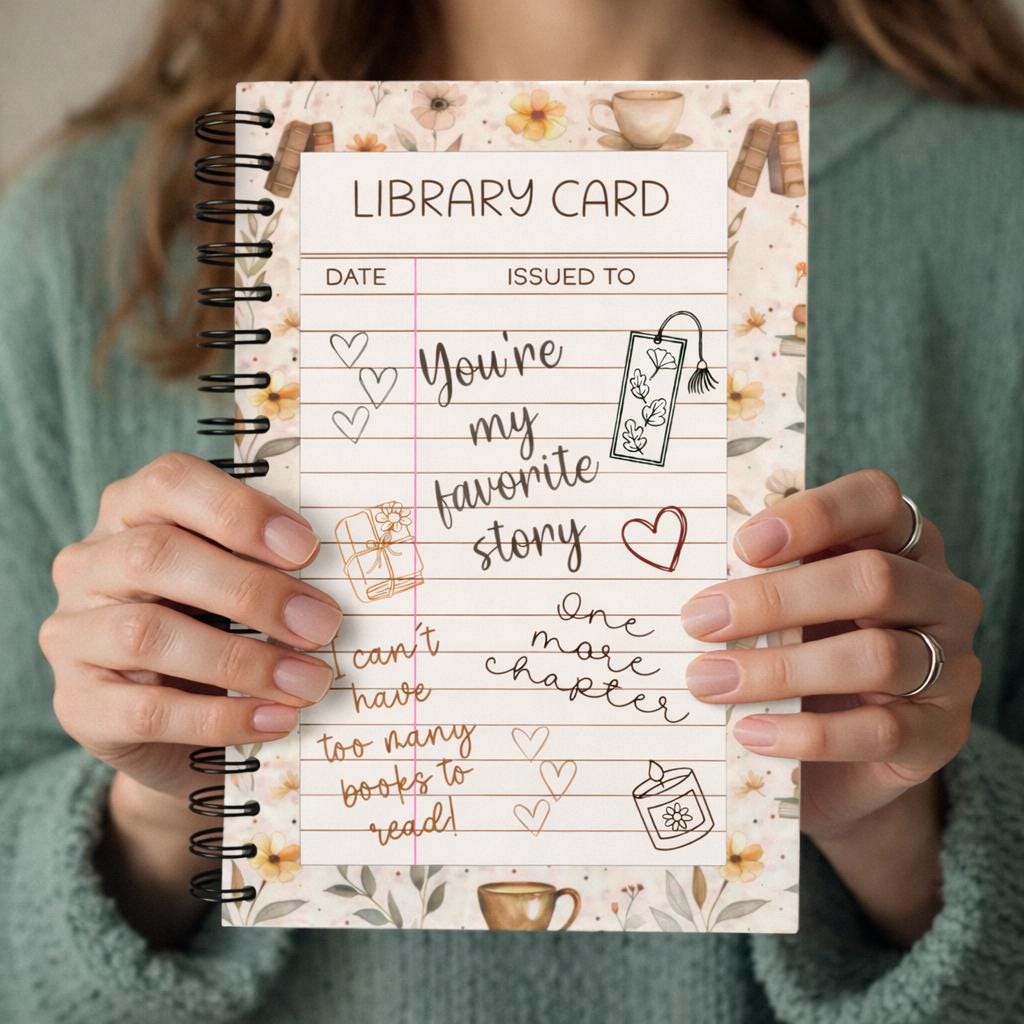 LIBRARY CARD
DATE ISSUED TO
You're
my
favorite
story
One
more
chapter
I can't
have
too many
books to
read!